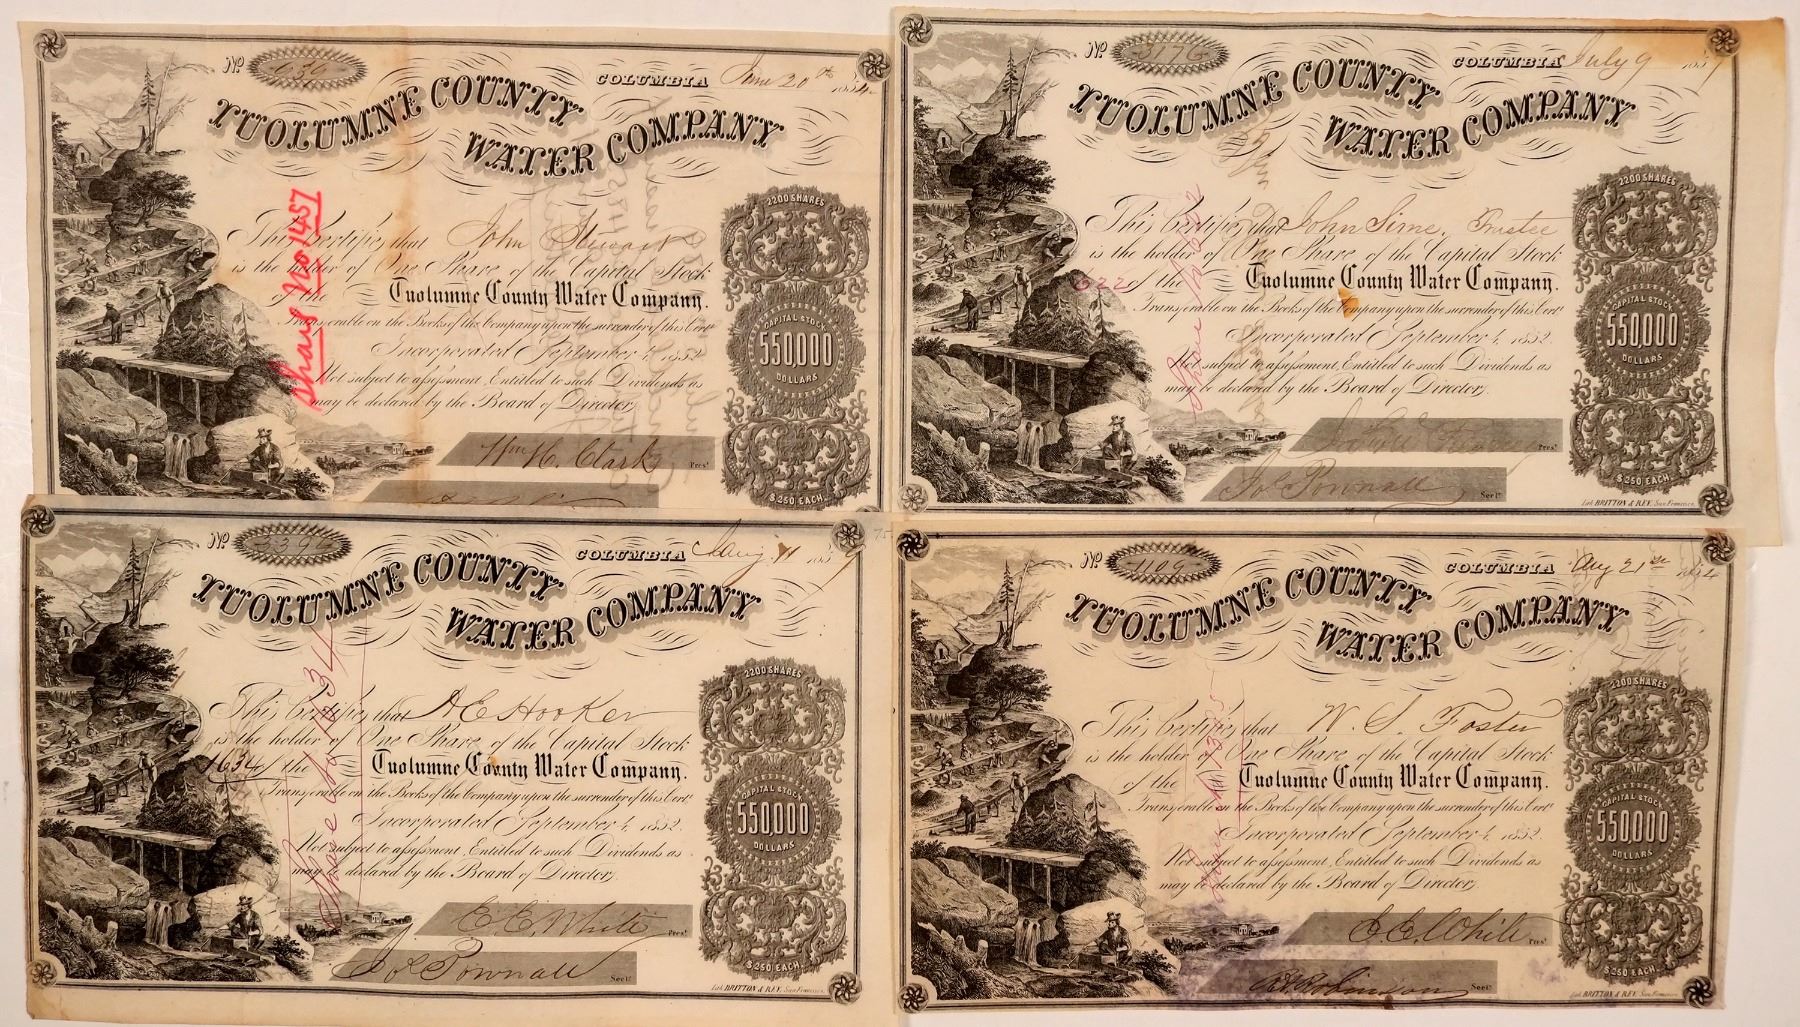 No 630
COLUMBIA June 20th 1854
TUOLUMNE COUNTY
WATER COMPANY
Share No 1457
2200 SHARES
This Certifies that John Stewart
is the holder of One Share of the Capital Stock
of the Tuolumne County Water Company.
Transferable on the Books of the Company upon the surrender of this Certe
CAPITAL STOCK
550,000
DOLLARS
Incorporated September 4, 1852
Not subject to assessment, Entitled to such Dividends as
may be declared by the Board of Directors
Wm H. Clark Prest
$250 EACH
No 3176
COLUMBIA July 9 1857
TUOLUMNE COUNTY
WATER COMPANY
Share No 622
2200 SHARES
This Certifies that John Sime, Trustee
is the holder of One Share of the Capital Stock
622 of the Tuolumne County Water Company.
Transferable on the Books of the Company upon the surrender of this Certe
CAPITAL STOCK
550,000
DOLLARS
Incorporated September 4, 1852
Not subject to assessment, Entitled to such Dividends as
may be declared by the Board of Directors
Prest
Jos Pownall Secty
$250 EACH
Lith. BRITTON & REY, San Francisco
No 39
COLUMBIA Jany 11 1859
TUOLUMNE COUNTY
WATER COMPANY
Share No 1634
2200 SHARES
This Certifies that A E Hooker
is the holder of One Share of the Capital Stock
1634 of the Tuolumne County Water Company.
Transferable on the Books of the Company upon the surrender of this Certe
CAPITAL STOCK
550,000
DOLLARS
Incorporated September 4, 1852
Not subject to assessment, Entitled to such Dividends as
may be declared by the Board of Directors
E. E. White Prest
Jos Pownall Secty
$250 EACH
Lith. BRITTON & REY, San Francisco
No 1109
COLUMBIA Aug 21st 1854
TUOLUMNE COUNTY
WATER COMPANY
2200 SHARES
This Certifies that W. S. Foster
is the holder of One Share of the Capital Stock
of the Tuolumne County Water Company.
Transferable on the Books of the Company upon the surrender of this Certe
CAPITAL STOCK
550,000
DOLLARS
Incorporated September 4, 1852
Not subject to assessment, Entitled to such Dividends as
may be declared by the Board of Directors
E. E. White Prest
Robinson Secty
$250 EACH
Lith. BRITTON & REY, San Francisco